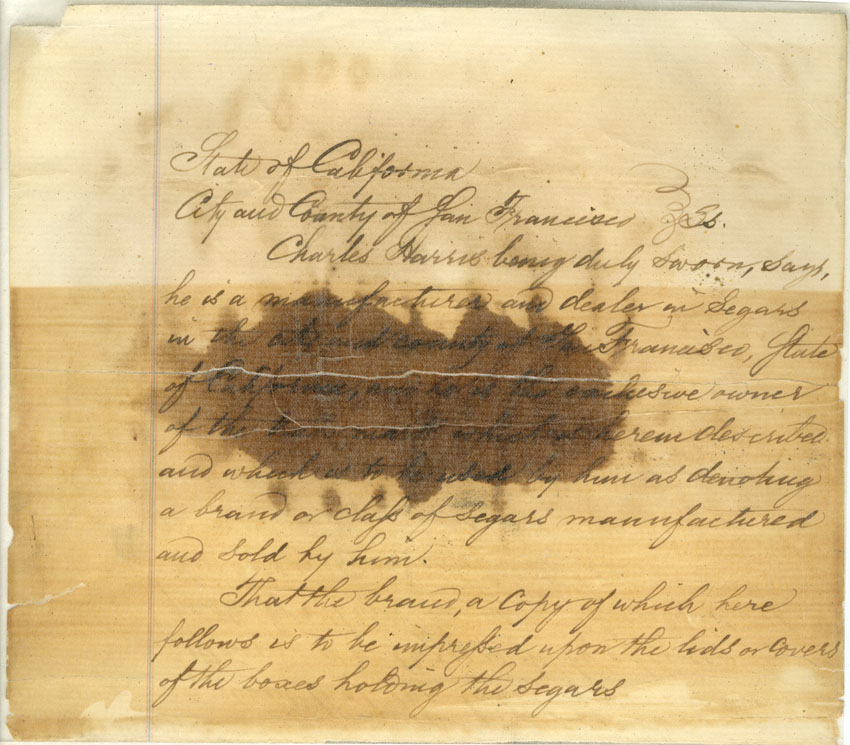 State of California
City and County of San Francisco } ss.
Charles Harris being duly sworn, says,
he is a manufacturer and dealer in Segars
in the city and county of San Francisco, State
of California, and is the exclusive owner
of the trade mark which is herein described
and which is to be used by him as denoting
a brand or class of segars manufactured
and sold by him.
That the brand, a copy of which here
follows is to be impressed upon the lids or covers
of the boxes holding the segars